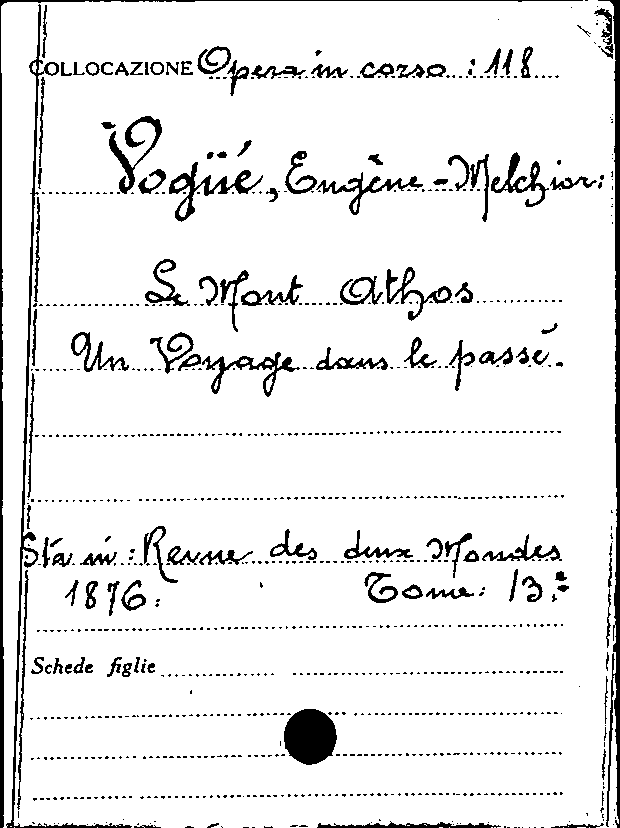 COLLOCAZIONE Opera in corso : 118
Vogüé, Eugène-Melchior:
Le Mont Athos
Un Voyage dans le passé.
Sta in : Revue des deux Mondes
1876. Tome: 13.º
Schede figlie